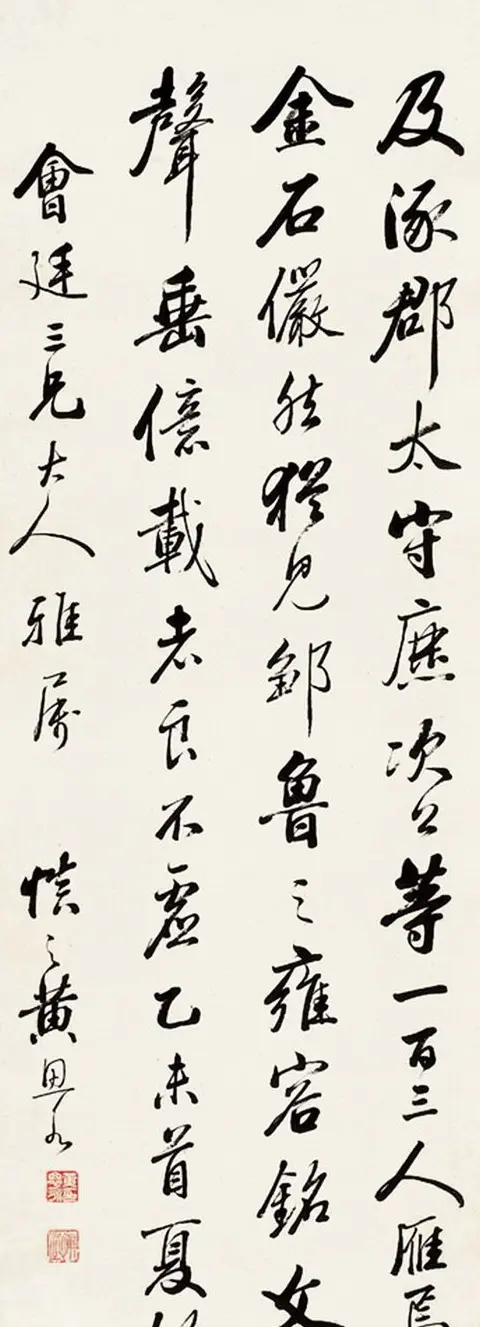 及涿郡太守麃次公等一百三人雁
金石儼然猶見鄒魯之雍容銘文
聲垂億載者良不虛乙未首夏
會廷三兄大人雅屬
慎之黃思永